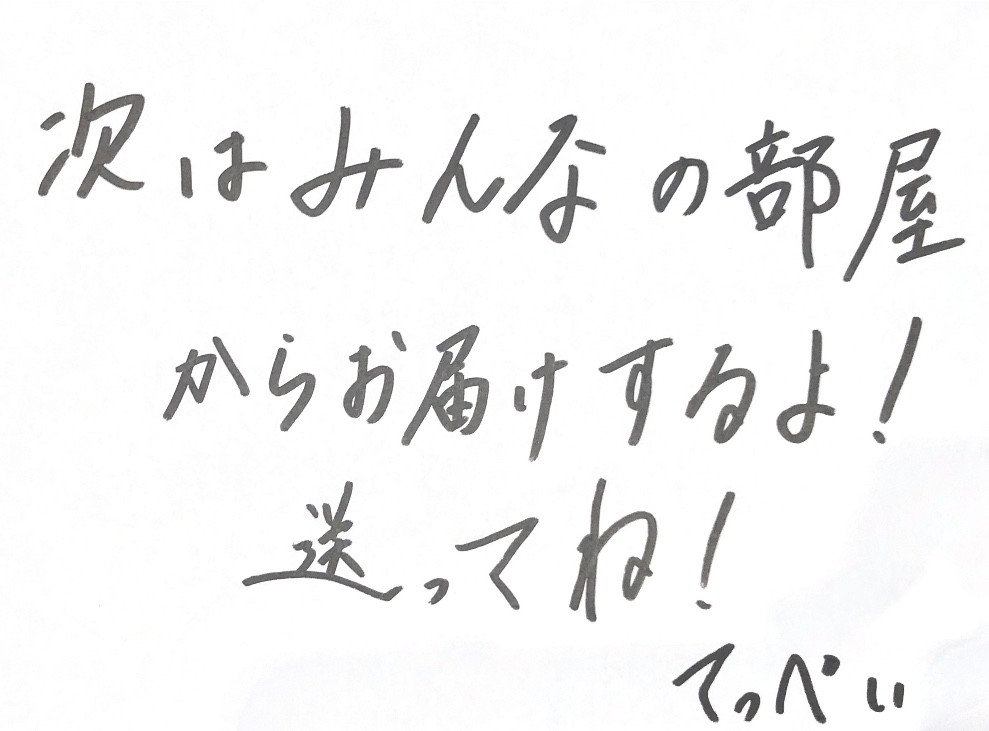 次はみんなの部屋
からお届けするよ!
送ってね!
てっぺい